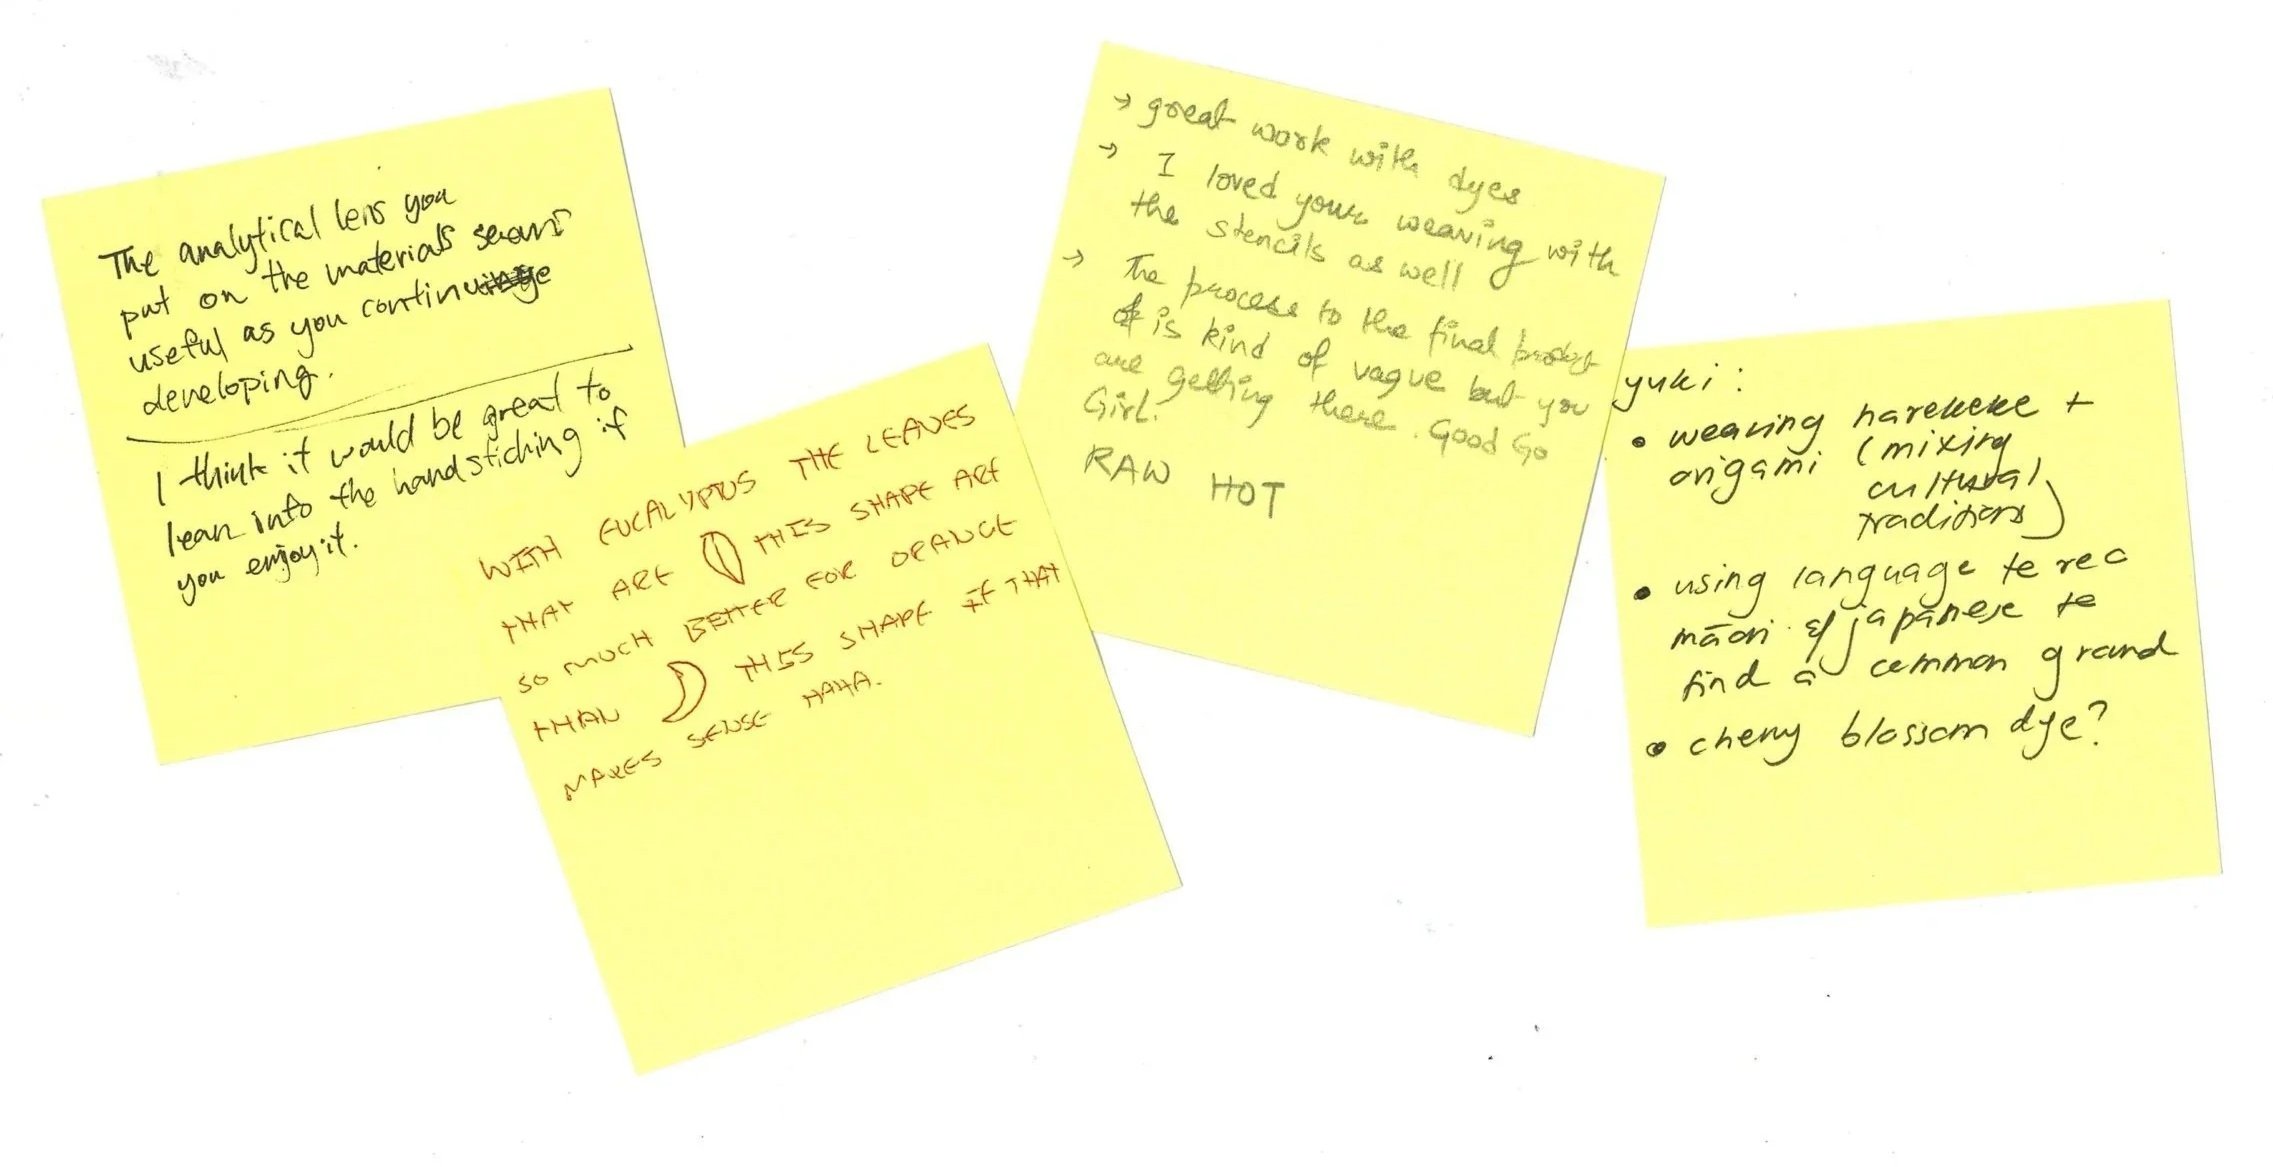 The analytical lens you
put on the materials seam
useful as you continue
developing.
I think it would be great to
lean into the handstiching if
you enjoy it.
WITH EUCALYPTUS THE LEAVES
THAT ARE THIS SHAPE ARE
SO MUCH BETTER FOR ORANGE
THAN THIS SHAPE IF THAT
MAKES SENSE HAHA.
→ great work with dyes
→ I loved your weaving with
the stencils as well
→ The process to the final product
is kind of vague but you
are getting there. Good Go
Girl.
RAW HOT
yuki :
• weaving harekeke +
origami (mixing
cultural
traditions)
• using language te reo
māori & japanese to
find a common ground
• cherry blossom dye?